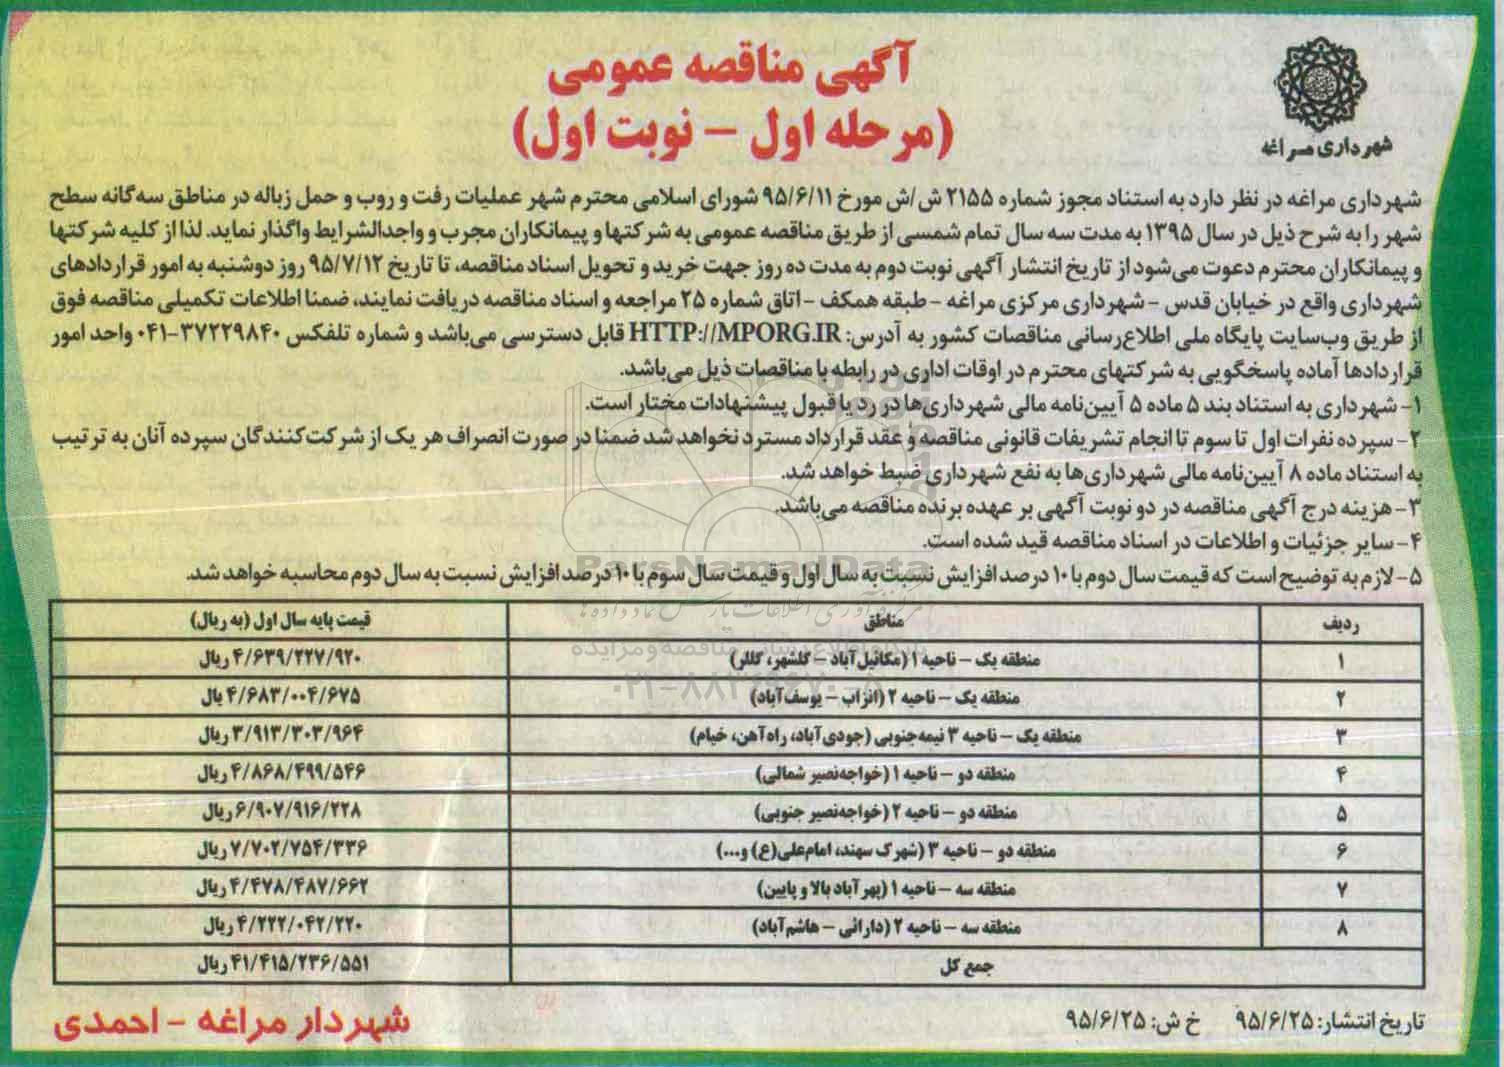 شهرداری مراغه
آگهی مناقصه عمومی
(مرحله اول – نوبت اول)
شهرداری مراغه در نظر دارد به استناد مجوز شماره ۲۱۵۵ ش/ش مورخ ۹۵/۶/۱۱ شورای اسلامی محترم شهر عملیات رفت و روب و حمل زباله در مناطق سه‌گانه سطح
شهر را به شرح ذیل در سال ۱۳۹۵ به مدت سه سال تمام شمسی از طریق مناقصه عمومی به شرکتها و پیمانکاران مجرب و واجدالشرایط واگذار نماید. لذا از کلیه شرکتها
و پیمانکاران محترم دعوت می‌شود از تاریخ انتشار آگهی نوبت دوم به مدت ده روز جهت خرید و تحویل اسناد مناقصه، تا تاریخ ۹۵/۷/۱۲ روز دوشنبه به امور قراردادهای
شهرداری واقع در خیابان قدس – شهرداری مرکزی مراغه – طبقه همکف – اتاق شماره ۲۵ مراجعه و اسناد مناقصه دریافت نمایند، ضمنا اطلاعات تکمیلی مناقصه فوق
از طریق وب‌سایت پایگاه ملی اطلاع‌رسانی مناقصات کشور به آدرس: HTTP://MPORG.IR قابل دسترسی می‌باشد و شماره تلفکس ۳۷۲۲۹۸۴۰-۰۴۱ واحد امور
قراردادها آماده پاسخگویی به شرکتهای محترم در اوقات اداری در رابطه با مناقصات ذیل می‌باشد.
۱- شهرداری به استناد بند ۵ ماده ۵ آیین‌نامه مالی شهرداری‌ها در رد یا قبول پیشنهادات مختار است.
۲- سپرده نفرات اول تا سوم تا انجام تشریفات قانونی مناقصه و عقد قرارداد مسترد نخواهد شد ضمنا در صورت انصراف هر یک از شرکت‌کنندگان سپرده آنان به ترتیب
به استناد ماده ۸ آیین‌نامه مالی شهرداری‌ها به نفع شهرداری ضبط خواهد شد.
۳- هزینه درج آگهی مناقصه در دو نوبت آگهی بر عهده برنده مناقصه می‌باشد.
۴- سایر جزئیات و اطلاعات در اسناد مناقصه قید شده است.
۵- لازم به توضیح است که قیمت سال دوم با ۱۰ درصد افزایش نسبت به سال اول و قیمت سال سوم با ۱۰ درصد افزایش نسبت به سال دوم محاسبه خواهد شد.
ردیف مناطق قیمت پایه سال اول (به ریال)
۱ منطقه یک – ناحیه ۱ (مکائیل‌آباد – گلشهر، کللر) ۴/۶۳۹/۲۲۷/۹۲۰ ریال
۲ منطقه یک – ناحیه ۲ (انزاب – یوسف‌آباد) ۴/۶۸۳/۰۰۴/۶۷۵ یال
۳ منطقه یک – ناحیه ۳ نیمه‌جنوبی (جودی‌آباد، راه‌آهن، خیام) ۳/۹۱۳/۳۰۳/۹۶۴ ریال
۴ منطقه دو – ناحیه ۱ (خواجه‌نصیر شمالی) ۴/۸۶۸/۴۹۹/۵۴۶ ریال
۵ منطقه دو – ناحیه ۲ (خواجه‌نصیر جنوبی) ۶/۹۰۷/۹۱۶/۲۲۸ ریال
۶ منطقه دو – ناحیه ۳ (شهرک سهند، امام‌علی(ع) و...) ۷/۷۰۲/۷۵۴/۳۳۶ ریال
۷ منطقه سه – ناحیه ۱ (پهرآباد بالا و پایین) ۴/۴۷۸/۴۸۷/۶۶۲ ریال
۸ منطقه سه – ناحیه ۲ (دارائی – هاشم‌آباد) ۴/۲۲۲/۰۴۲/۲۲۰ ریال
جمع کل ۴۱/۴۱۵/۲۳۶/۵۵۱ ریال
تاریخ انتشار: ۹۵/۶/۲۵ خ ش: ۹۵/۶/۲۵
شهردار مراغه – احمدی
ParsNamadData
مرکز فرآوری اطلاعات پارس نماد داده‌ها
پایگاه اطلاع رسانی مناقصه و مزایده
۰۲۱-۸۸۳۴۹۶۷۰-۵